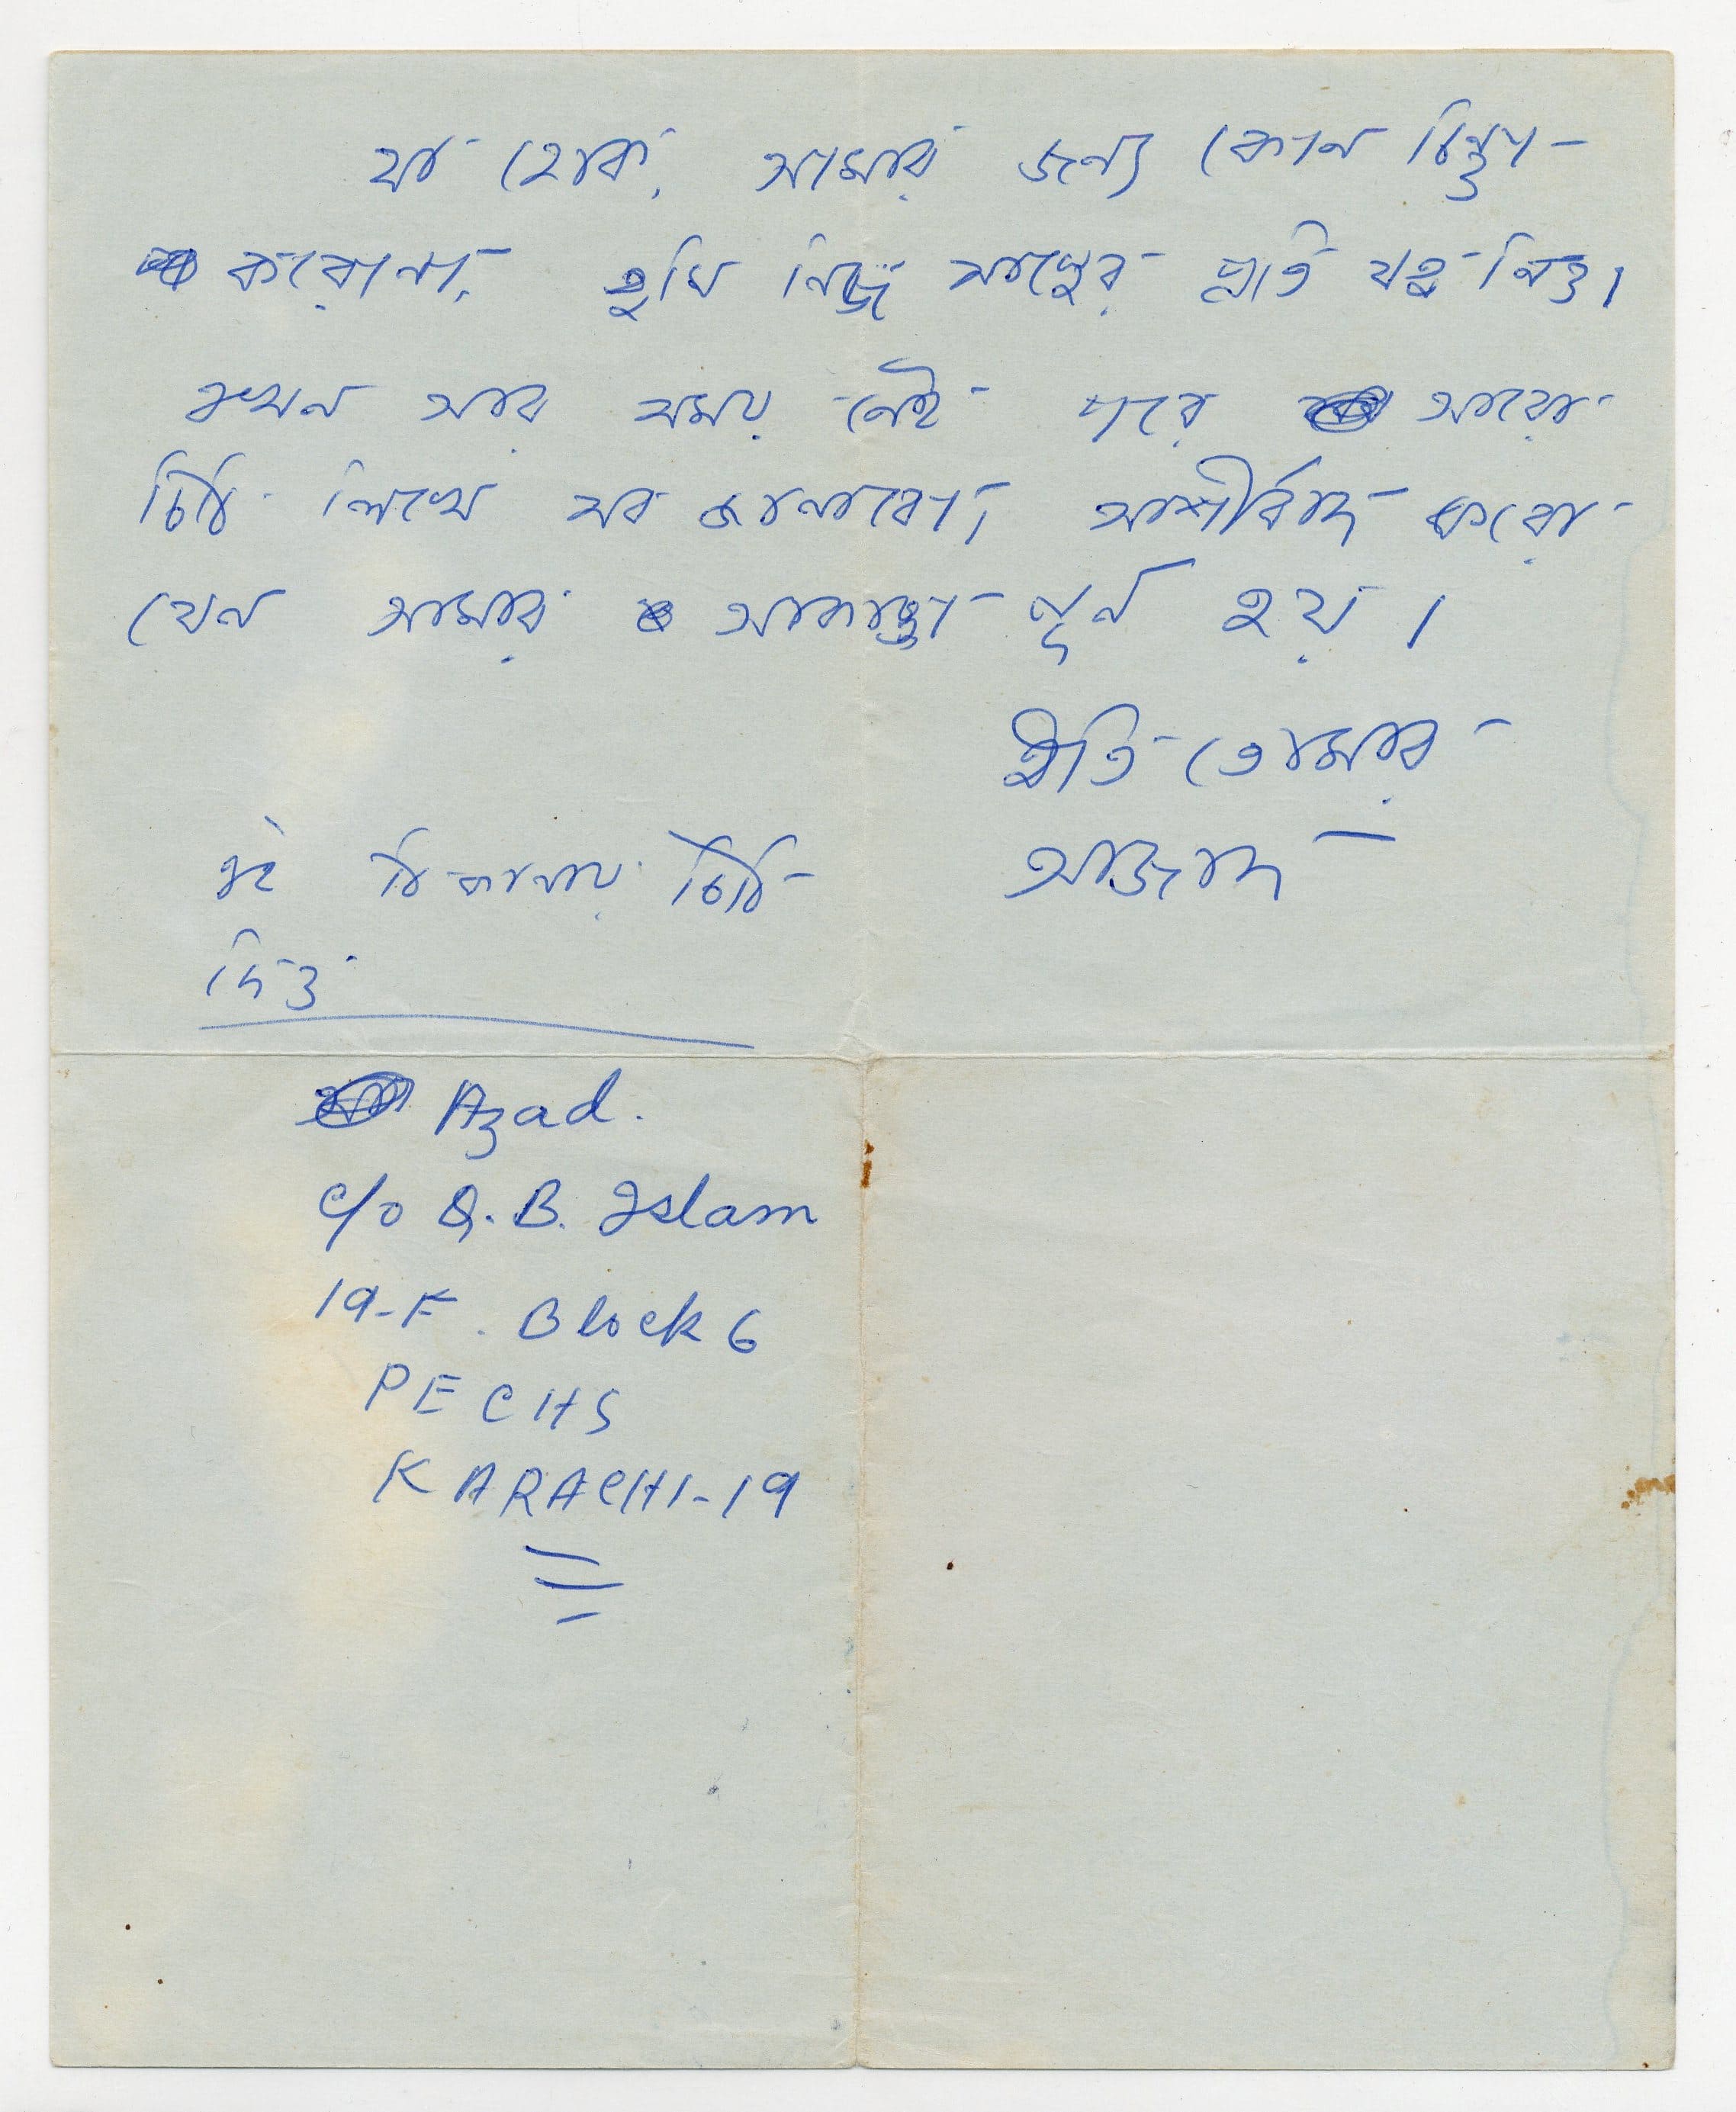 যা হোক, আমার জন্য কোন চিন্তা
করোনা, তুমি নিজ সাস্থের প্রতি যত্ন নিও।
এখন আর সময় নেই পরে আরো
চিঠি লিখে সব জানাবো, আশীর্বাদ করো
যেন আমার আকাঙ্খা পূর্ন হয়।
ইতি তোমার
আজাদ
এই ঠিকানায় চিঠি
দিও
Azad.
c/o Q. B. Islam
19-F. Block 6
PECHS
KARACHI-19